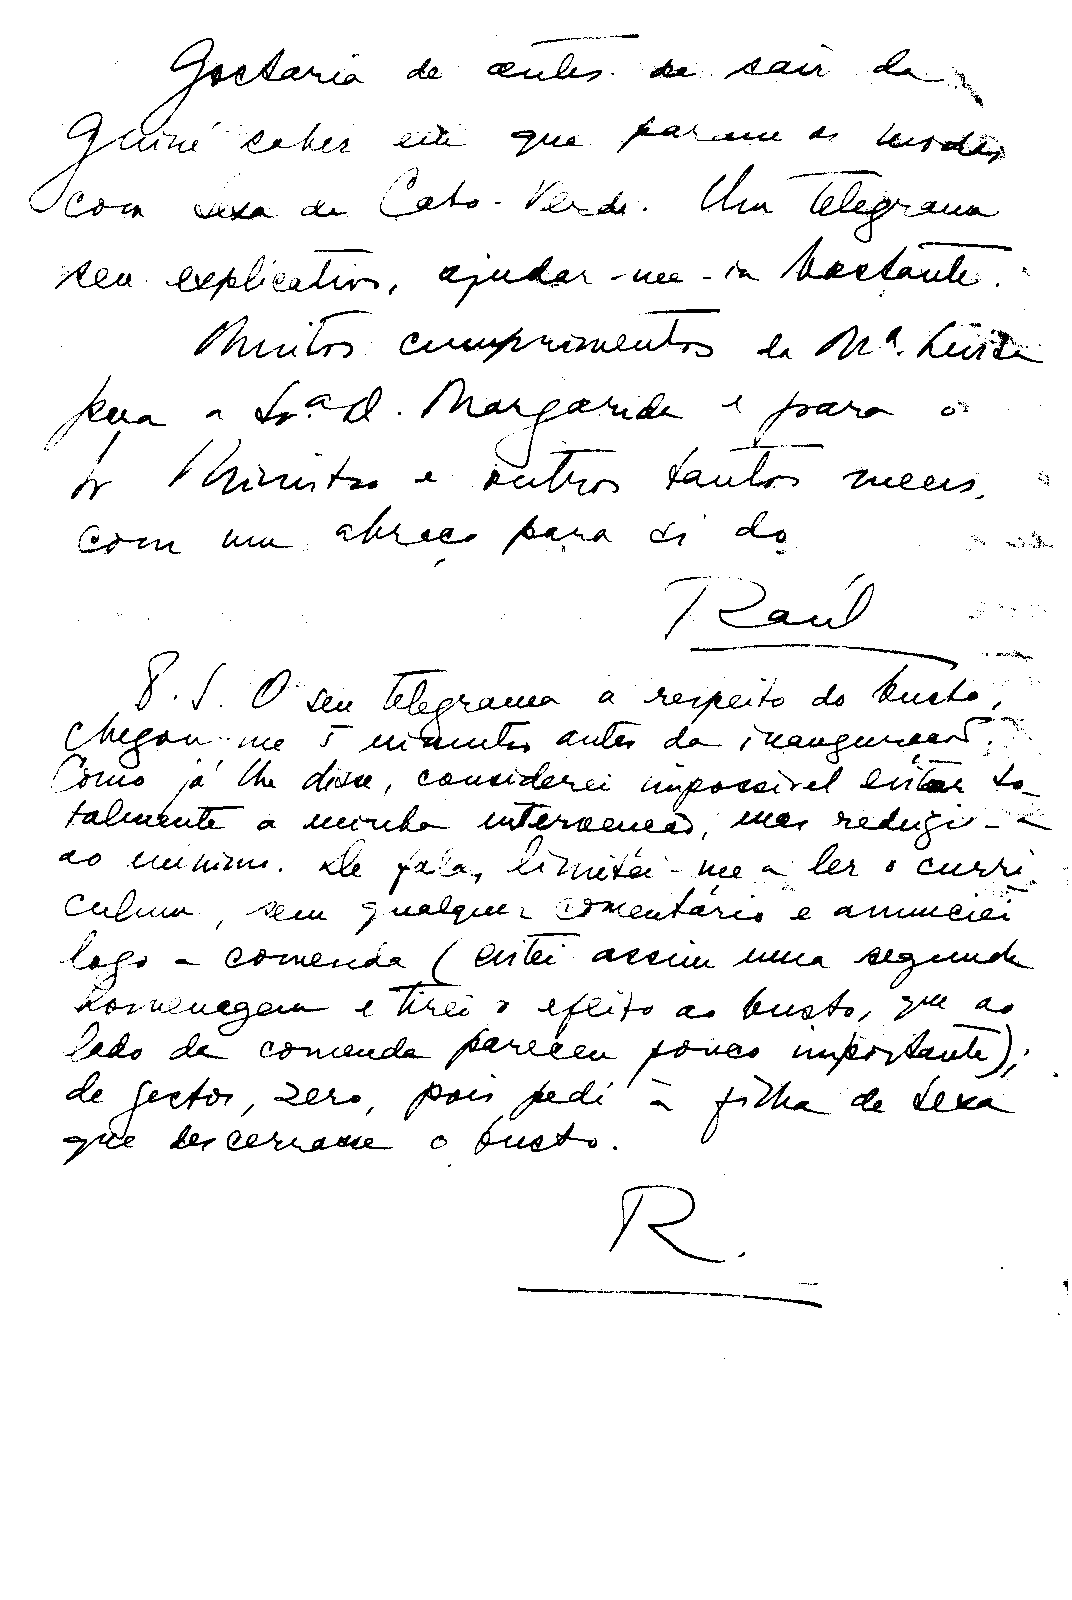 Gostaria de antes de sair da
Guiné saber em que param as modas
com sexa de Cabo-Verde. Um telegrama
seu explicativo, ajudar-me-ia bastante.
Muitos cumprimentos da Mª. Luísa
para a Srª D. Margarida e para o
Sr Ministro e outros tantos meus,
com um abraço para si do
Raúl
P.S. O seu telegrama a respeito do busto,
chegou-me 5 minutos antes da inauguração.
Como já lhe disse, considerei impossível evitar to-
talmente a minha intervenção, mas reduzi-a
ao mínimo. De fala, limitei-me a ler o curri-
culum, sem qualquer comentário e anunciei
logo a comenda (evitei assim uma segunda
homenagem e tirei o efeito ao busto, que ao
lado da comenda pareceu pouco importante);
de gestos, zero, pois pedi à filha de sexa
que descerrasse o busto.
R.